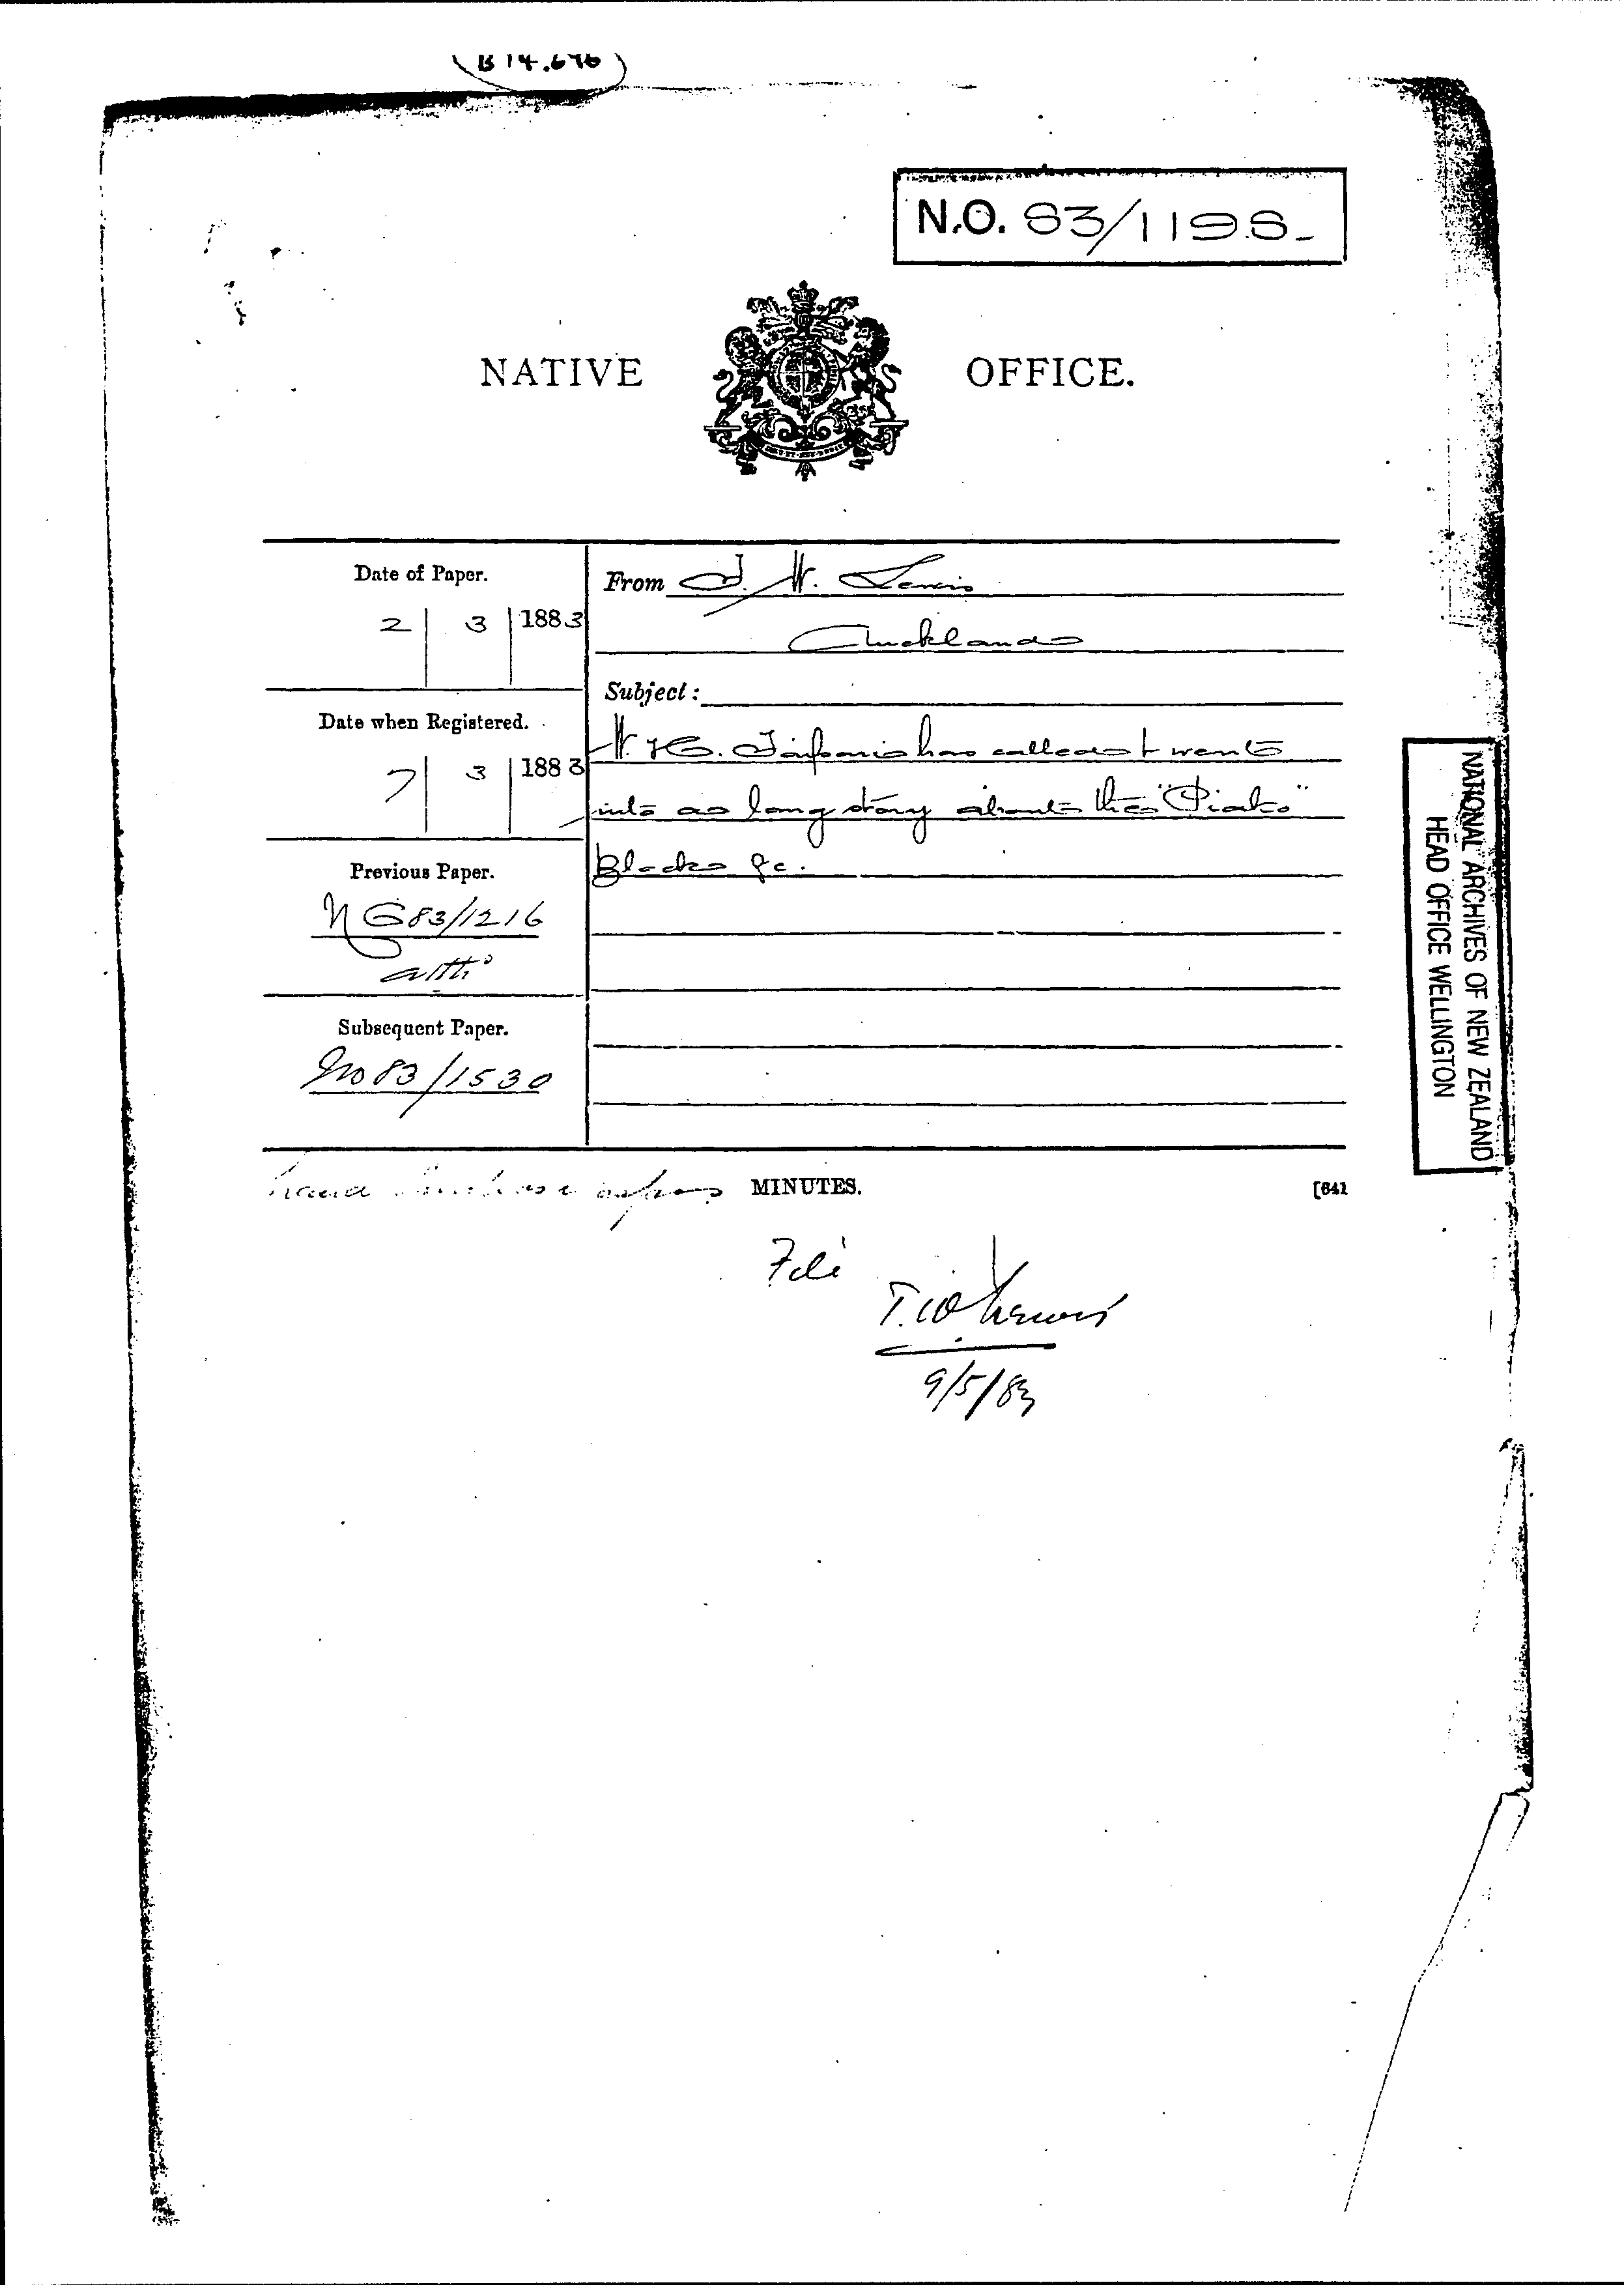 B 14.646
N.O. 83/1198
NATIVE OFFICE.
Date of Paper.
2 | 3 | 1883
From T. W. Lewis
Auckland
Subject:
Date when Registered.
7 | 3 | 1883
W. H. has called & went
into a long story about the "Piako"
Block &c.
Previous Paper.
NO 83/1216
atta
Subsequent Paper.
NO 83/1530
Land Purchase MINUTES. [641
File
T.W. Lewis
9/5/83
NATIONAL ARCHIVES OF NEW ZEALAND
HEAD OFFICE WELLINGTON